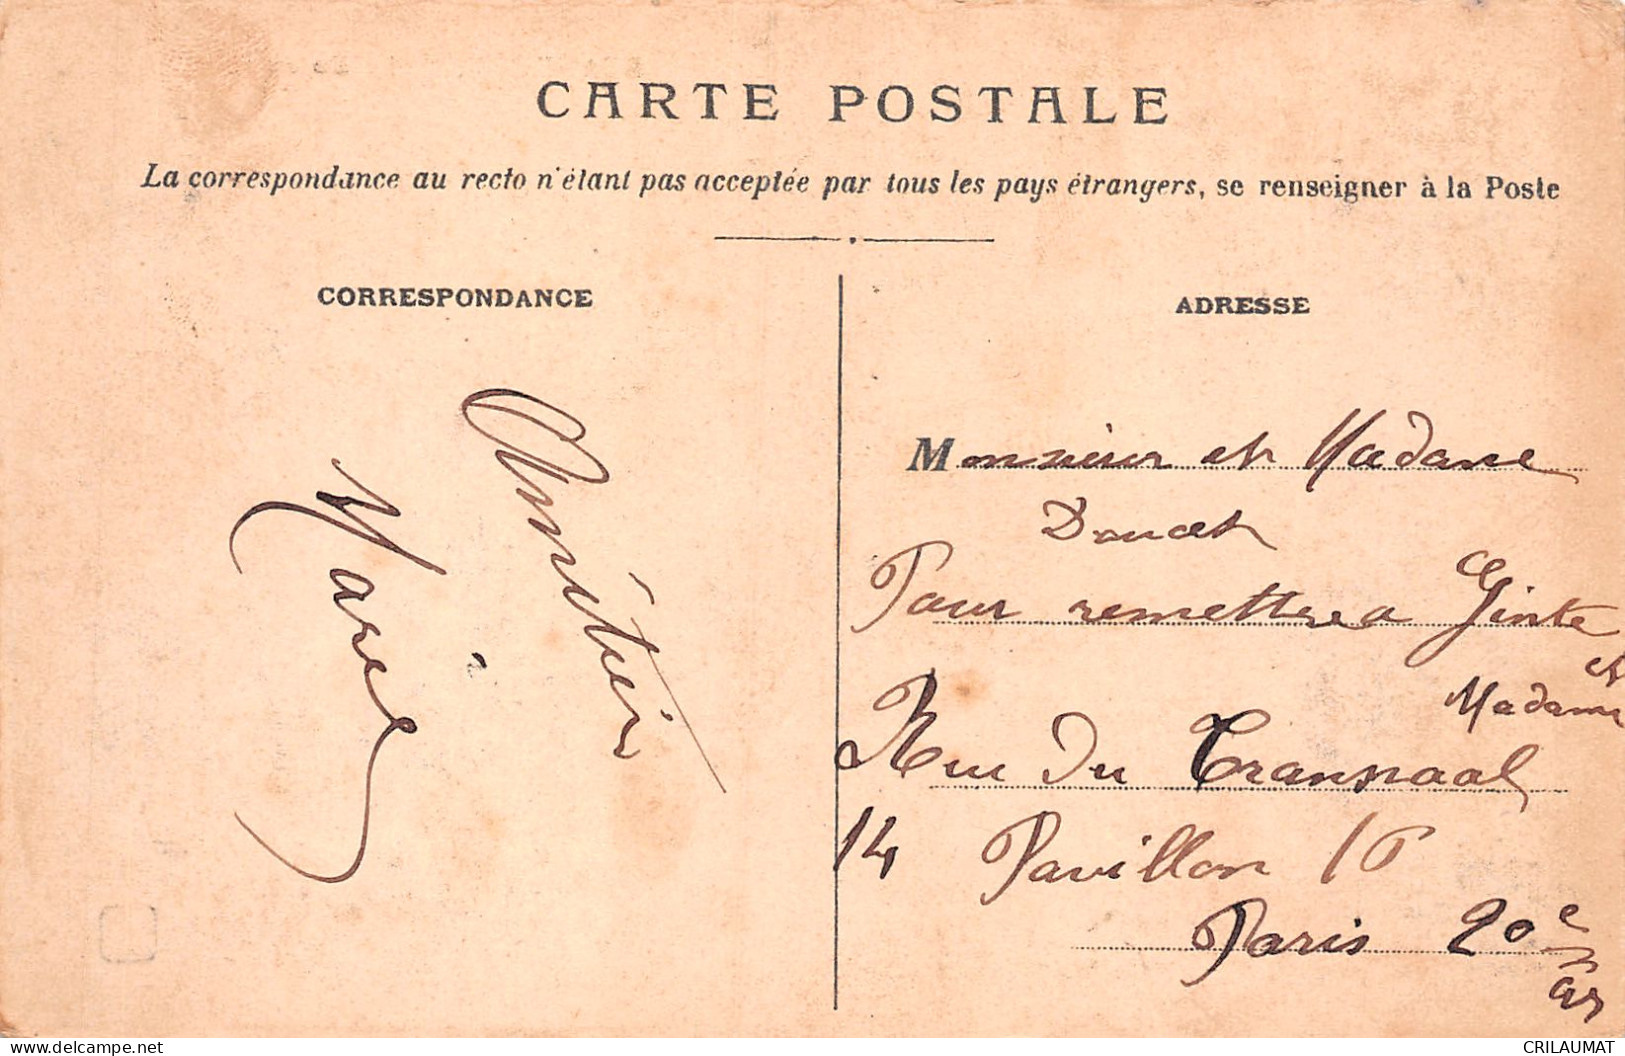 CARTE POSTALE
La correspondance au recto n'étant pas acceptée par tous les pays étrangers, se renseigner à la Poste
CORRESPONDANCE
Marie
ADRESSE
Monsieur et Madame
Doucet
Pour remettre a
et
Madame
Rue du Transvaal
14 Pavillon 16
Paris 20e
ar
www.delcampe.net
CRILAUMAT